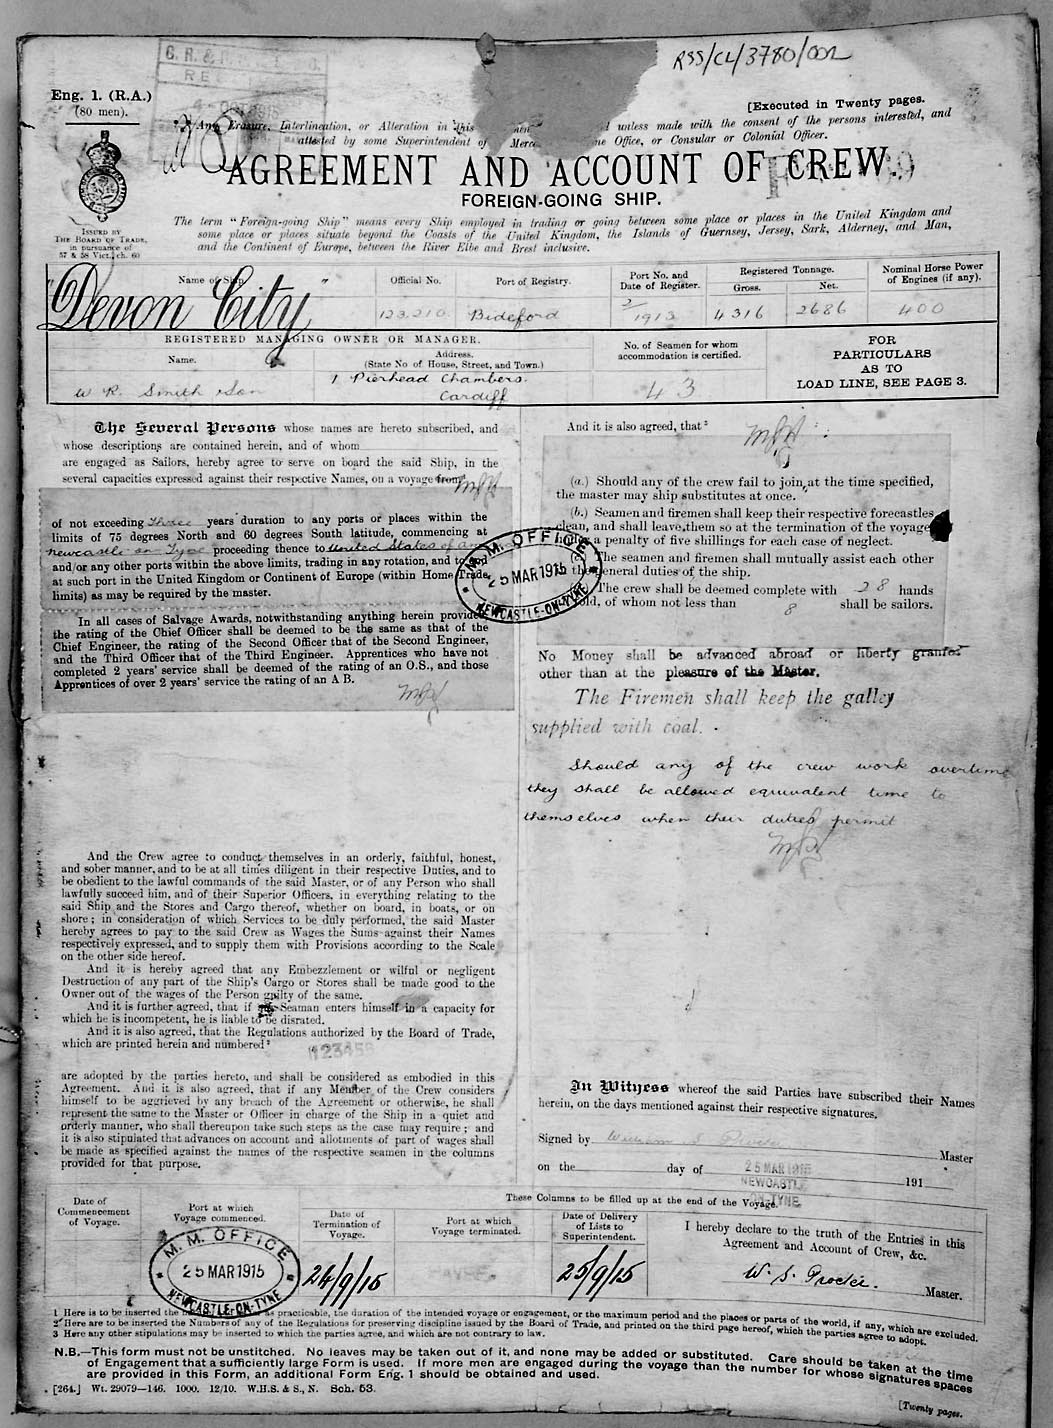 RSS/CL/3780/002
Eng. 1. (R.A.)
(80 men).
[Executed in Twenty pages.
Any Erasure, Interlineation, or Alteration in this unless made with the consent of the persons interested, and
attested by some Superintendent of Office, or Consular or Colonial Officer.
AGREEMENT AND ACCOUNT OF CREW.
FOREIGN-GOING SHIP.
ISSUED BY
THE BOARD OF TRADE,
in pursuance of
57 & 58 Vict., ch. 60
The term "Foreign-going Ship" means every Ship employed in trading or going between some place or places in the United Kingdom and
some place or places situate beyond the Coasts of the United Kingdom, the Islands of Guernsey, Jersey, Sark, Alderney, and Man,
and the Continent of Europe, between the River Elbe and Brest inclusive.
Name of Ship
Official No.
Port of Registry.
Port No. and
Date of Register.
Registered Tonnage.
Gross.
Net.
Nominal Horse Power
of Engines (if any).
"Devon City"
123,210
Bideford
2/1913
4316
2686
400
REGISTERED MANAGING OWNER OR MANAGER.
Name.
Address.
(State No of House, Street, and Town.)
No. of Seamen for whom
accommodation is certified.
FOR
PARTICULARS
AS TO
LOAD LINE, SEE PAGE 3.
W R. Smith & Son
1 Pierhead Chambers.
Cardiff
43
The Several Persons whose names are hereto subscribed, and
whose descriptions are contained herein, and of whom
are engaged as Sailors, hereby agree to serve on board the said Ship, in the
several capacities expressed against their respective Names, on a voyage from
of not exceeding three years' duration to any ports or places within the
limits of 75 degrees North and 60 degrees South latitude, commencing at
Newcastle on Tyne proceeding thence to United States of
and/or any other ports within the above limits, trading in any rotation, and to
at such port in the United Kingdom or Continent of Europe (within Home Trade
limits) as may be required by the master.
In all cases of Salvage Awards, notwithstanding anything herein provided,
the rating of the Chief Officer shall be deemed to be the same as that of the
Chief Engineer, the rating of the Second Officer that of the Second Engineer,
and the Third Officer that of the Third Engineer. Apprentices who have not
completed 2 years' service shall be deemed of the rating of an O.S., and those
Apprentices of over 2 years' service the rating of an A B.
And the Crew agree to conduct themselves in an orderly, faithful, honest,
and sober manner, and to be at all times diligent in their respective Duties, and to
be obedient to the lawful commands of the said Master, or of any Person who shall
lawfully succeed him, and of their Superior Officers, in everything relating to the
said Ship and the Stores and Cargo thereof, whether on board, in boats, or on
shore; in consideration of which Services to be duly performed, the said Master
hereby agrees to pay to the said Crew as Wages the Sums against their Names
respectively expressed, and to supply them with Provisions according to the Scale
on the other side hereof.
And it is hereby agreed that any Embezzlement or wilful or negligent
Destruction of any part of the Ship's Cargo or Stores shall be made good to the
Owner out of the wages of the Person guilty of the same.
And it is further agreed, that if Seaman enters himself in a capacity for
which he is incompetent, he is liable to be disrated.
And it is also agreed, that the Regulations authorized by the Board of Trade,
which are printed herein and numbered²
123456
are adopted by the parties hereto, and shall be considered as embodied in this
Agreement. And it is also agreed, that if any Member of the Crew considers
himself to be aggrieved by any breach of the Agreement or otherwise, he shall
represent the same to the Master or Officer in charge of the Ship in a quiet and
orderly manner, who shall thereupon take such steps as the case may require; and
it is also stipulated that advances on account and allotments of part of wages shall
be made as specified against the names of the respective seamen in the columns
provided for that purpose.
And it is also agreed, that ³
(a.) Should any of the crew fail to join at the time specified,
the master may ship substitutes at once.
(b.) Seamen and firemen shall keep their respective forecastles
clean, and shall leave them so at the termination of the voyage
a penalty of five shillings for each case of neglect.
The seamen and firemen shall mutually assist each other
in the general duties of the ship.
The crew shall be deemed complete with 28 hands
all told, of whom not less than 8 shall be sailors.
M. M. OFFICE
25 MAR 1915
NEWCASTLE-ON-TYNE
No Money shall be advanced abroad or liberty granted
other than at the pleasure of the Master.
The Firemen shall keep the galley
supplied with coal.
Should any of the crew work overtime
they shall be allowed equivalent time to
themselves when their duties permit
In Witness whereof the said Parties have subscribed their Names
herein, on the days mentioned against their respective signatures.
Signed by William S Procter Master
on the day of 25 MAR 1915 191
NEWCASTLE
ON-TYNE
These Columns to be filled up at the end of the Voyage.
Date of
Commencement
of Voyage.
Port at which
Voyage commenced.
Date of
Termination of
Voyage.
Port at which
Voyage terminated.
Date of Delivery
of Lists to
Superintendent.
I hereby declare to the truth of the Entries in this
Agreement and Account of Crew, &c.
M. M. OFFICE
25 MAR 1915
NEWCASTLE-ON-TYNE
24/9/15
25/9/15
W. S. Procter.
Master.
1 Here is to be inserted the as practicable, the duration of the intended voyage or engagement, or the maximum period and the places or parts of the world, if any, which are excluded.
2 Here are to be inserted the Numbers of any of the Regulations for preserving discipline issued by the Board of Trade, and printed on the third page hereof, which the parties agree to adopt.
3 Here any other stipulations may be inserted to which the parties agree, and which are not contrary to law.
N.B.—This form must not be unstitched. No leaves may be taken out of it, and none may be added or substituted. Care should be taken at the time
of Engagement that a sufficiently large Form is used. If more men are engaged during the voyage than the number for whose signatures spaces
are provided in this Form, an additional Form Eng. 1 should be obtained and used.
[264.] Wt. 29079—146. 1000. 12/10. W.H.S. & S., N. Sch. 53.
[Twenty pages.